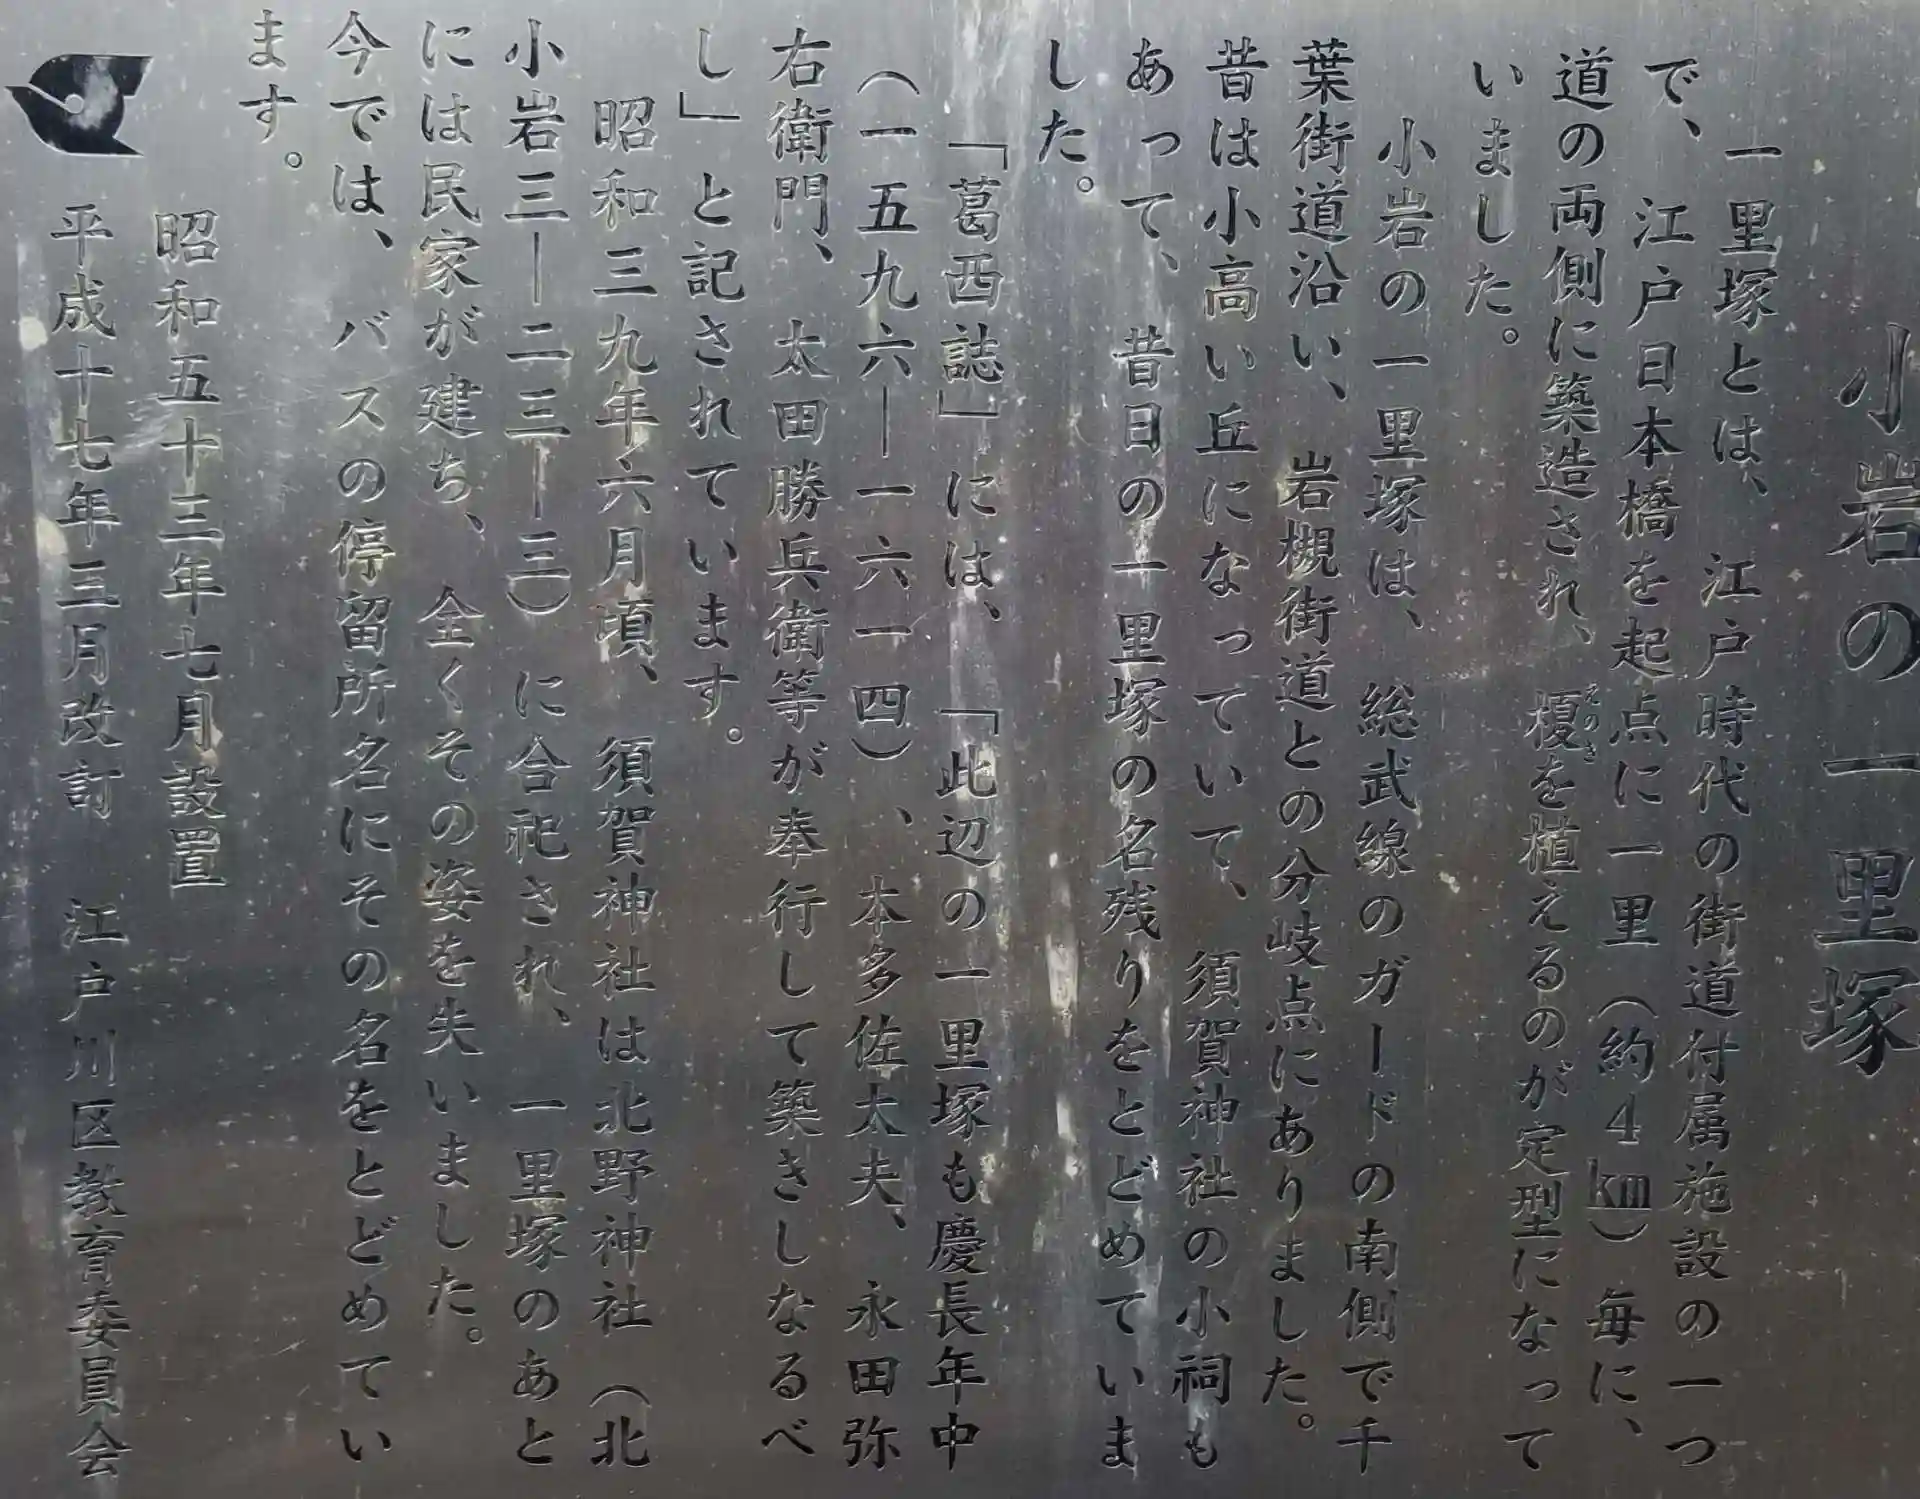 小岩の一里塚
一里塚とは、江戸時代の街道付属施設の一つ
で、江戸日本橋を起点に一里（約4㎞）毎に、
道の両側に築造され、榎を植えるのが定型になって
えのき
いました。
小岩の一里塚は、総武線のガードの南側で千
葉街道沿い、岩槻街道との分岐点にありました。
昔は小高い丘になっていて、須賀神社の小祠も
あって、昔日の一里塚の名残りをとどめていま
した。
「葛西誌」には、「此辺の一里塚も慶長年中
（一五九六―一六一四）、本多佐太夫、永田弥
右衛門、太田勝兵衛等が奉行して築きしなるべ
し」と記されています。
昭和三九年六月頃、須賀神社は北野神社（北
小岩三―二三―三）に合祀され、一里塚のあと
には民家が建ち、全くその姿を失いました。
今では、バスの停留所名にその名をとどめてい
ます。
昭和五十三年七月設置
平成十七年三月改訂　江戸川区教育委員会